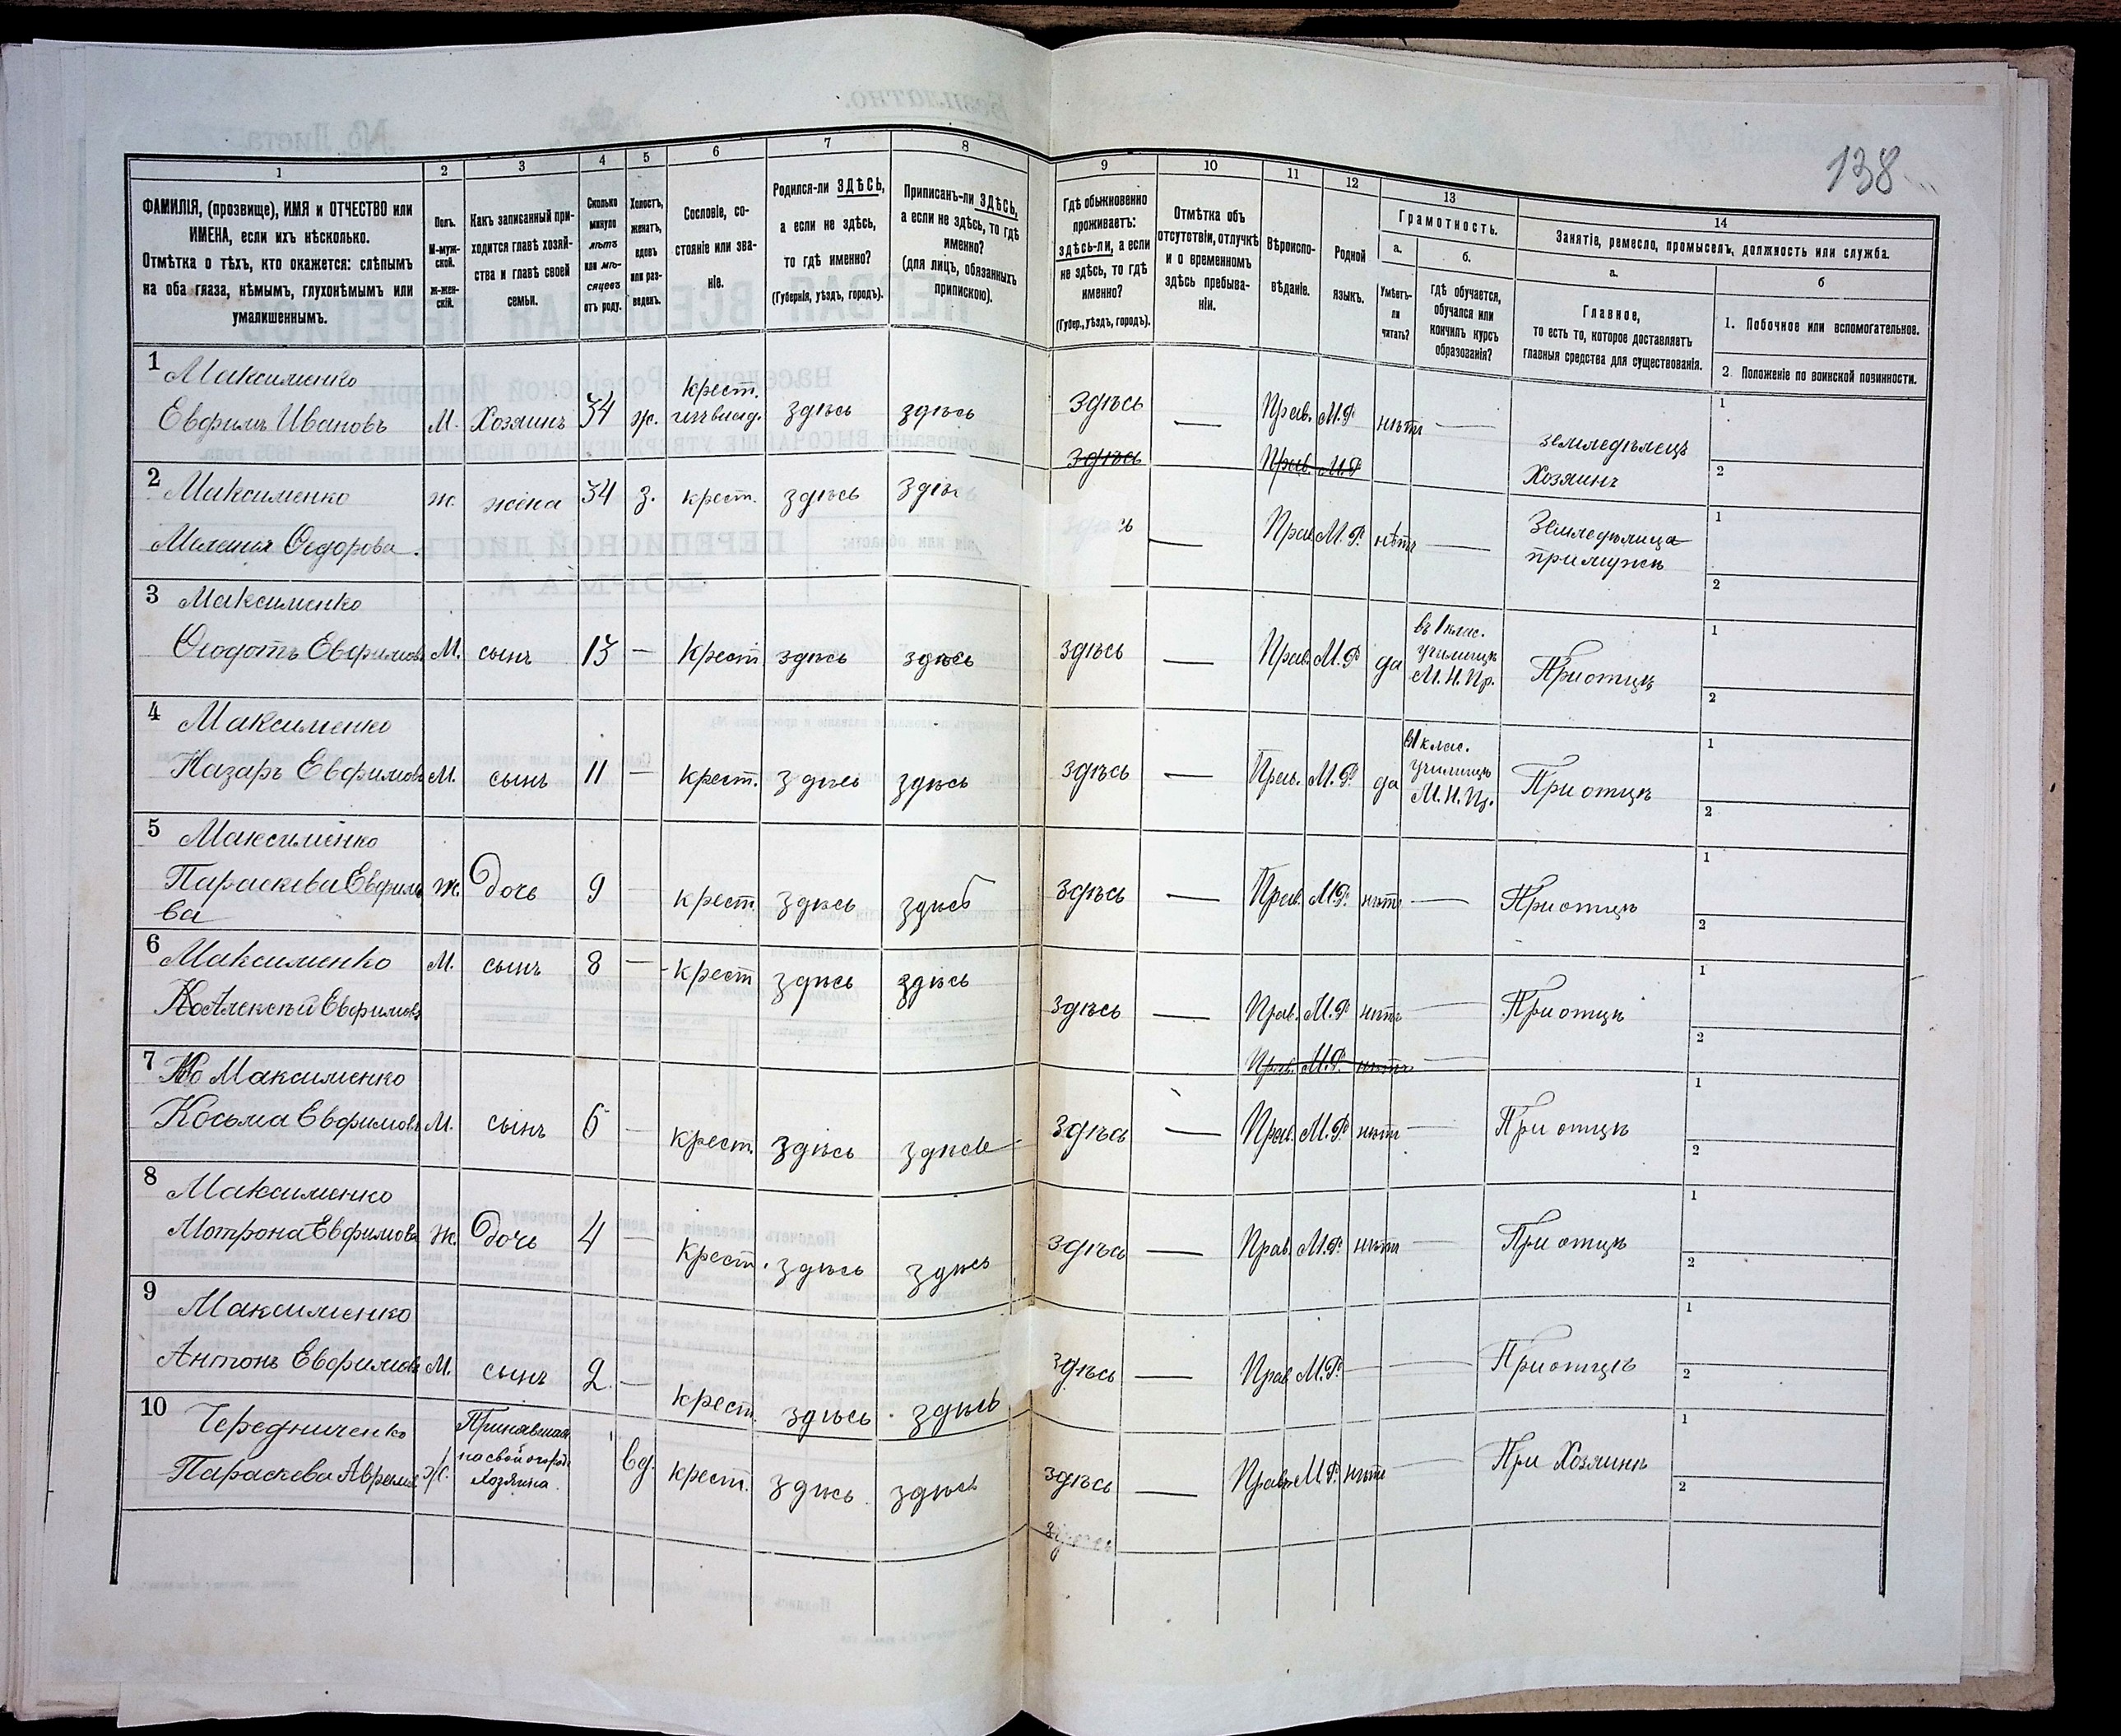 138
1 2 3 4 5 6 7 8 9 10 11 12 13 14
ФАМИЛІЯ, (прозвище), ИМЯ и ОТЧЕСТВО или
ИМЕНА, если ихъ нѣсколько.
Отмѣтка о тѣхъ, кто окажется: слѣпымъ
на оба глаза, нѣмымъ, глухонѣмымъ или
умалишеннымъ.
Полъ.
М-муж-
ской.
Ж-жен-
скій.
Какъ записанный при-
ходится главѣ хозяй-
ства и главѣ своей
семьи.
Сколько
минуло
лѣтъ
или мѣ-
сяцевъ
отъ роду.
Холостъ,
женатъ,
вдовъ
или раз-
веденъ.
Сословіе, со-
стояніе или зва-
ніе.
Родился-ли ЗДѢСЬ,
а если не здѣсь,
то гдѣ именно?
(Губернія, уѣздъ, городъ).
Приписанъ-ли ЗДѢСЬ,
а если не здѣсь, то гдѣ
именно?
(для лицъ, обязанныхъ
припискою).
Гдѣ обыкновенно
проживаетъ:
ЗДѢСЬ-ли, а если
не здѣсь, то гдѣ
именно?
(Губер., уѣздъ, городъ).
Отмѣтка объ
отсутствіи, отлучкѣ
и о временномъ
здѣсь пребыва-
ніи.
Вѣроиспо-
вѣданіе.
Родной
языкъ.
Грамотность.
а.
Умѣетъ-
ли
читать?
б.
гдѣ обучается,
обучался или
кончилъ курсъ
образованія?
Занятіе, ремесло, промыселъ, должность или служба.
а.
Главное,
то есть то, которое доставляетъ
главныя средства для существованія.
б
1. Побочное или вспомогательное.
2. Положеніе по воинской повинности.
1 Максименко
Евфимъ Ивановъ М. Хозяинъ 34 ж. крест. здѣсь здѣсь здѣсь — Прав. М.Р. нѣтъ — земледѣлецъ 1
здѣсь Прав. М.Р. Хозяинъ 2
2 Максименко ж. жена 34 з. крест. здѣсь
Мелания Ѳедорова. — Прав М.Р. нѣтъ — Земледѣлица 1
примужѣ 2
3 Максименко въ 1 клас. 1
Ѳеодотъ Евфимовъ М. сынъ 13 — Крест здѣсь здѣсь здѣсь — Прав. М.Р да училищѣ Приотцѣ
М.Н.Пр. 2
4 Максименко в1 клас. 1
Назаръ Евфимовъ М. сынъ 11 — крест. здѣсь здѣсь здѣсь — Прав. М.Р. да училищѣ При отцѣ
М.Н.Пр. 2
5 Максименко 1
Параскева Евфимо Ж. дочь 9 — крест. здѣсь здѣсь здѣсь — Прав. М.Р. нѣтъ — При отцѣ
ва 2
6 Максименко М. сынъ 8 — крест здѣсь здѣсь 1
Алексѣй Евфимовъ здѣсь — Прав. М.Р. нѣтъ — При отцѣ 2
Прав. М.Р. нѣтъ —
7 Максименко 1
Косьма Евфимовъ М. сынъ 6 — крест. здѣсь здѣсь здѣсь — Прав. М.Р. нѣтъ — При отцѣ 2
8 Максименко 1
Мотрона Евфимова Ж. дочь 4 — крест. здѣсь здѣсь здѣсь — Прав. М.Р. нѣтъ — При отцѣ 2
9 Максименко 1
Антонъ Евфимовъ М. сынъ 2 — крест. здѣсь здѣсь здѣсь — Прав М.Р. — — При отцѣ 2
10 Чередниченко 1
Параскева Ж. Хозяина вд. крест. здѣсь здѣсь здѣсь — Прав. М.Р. нѣтъ — При Хозяинѣ 2
здѣсь